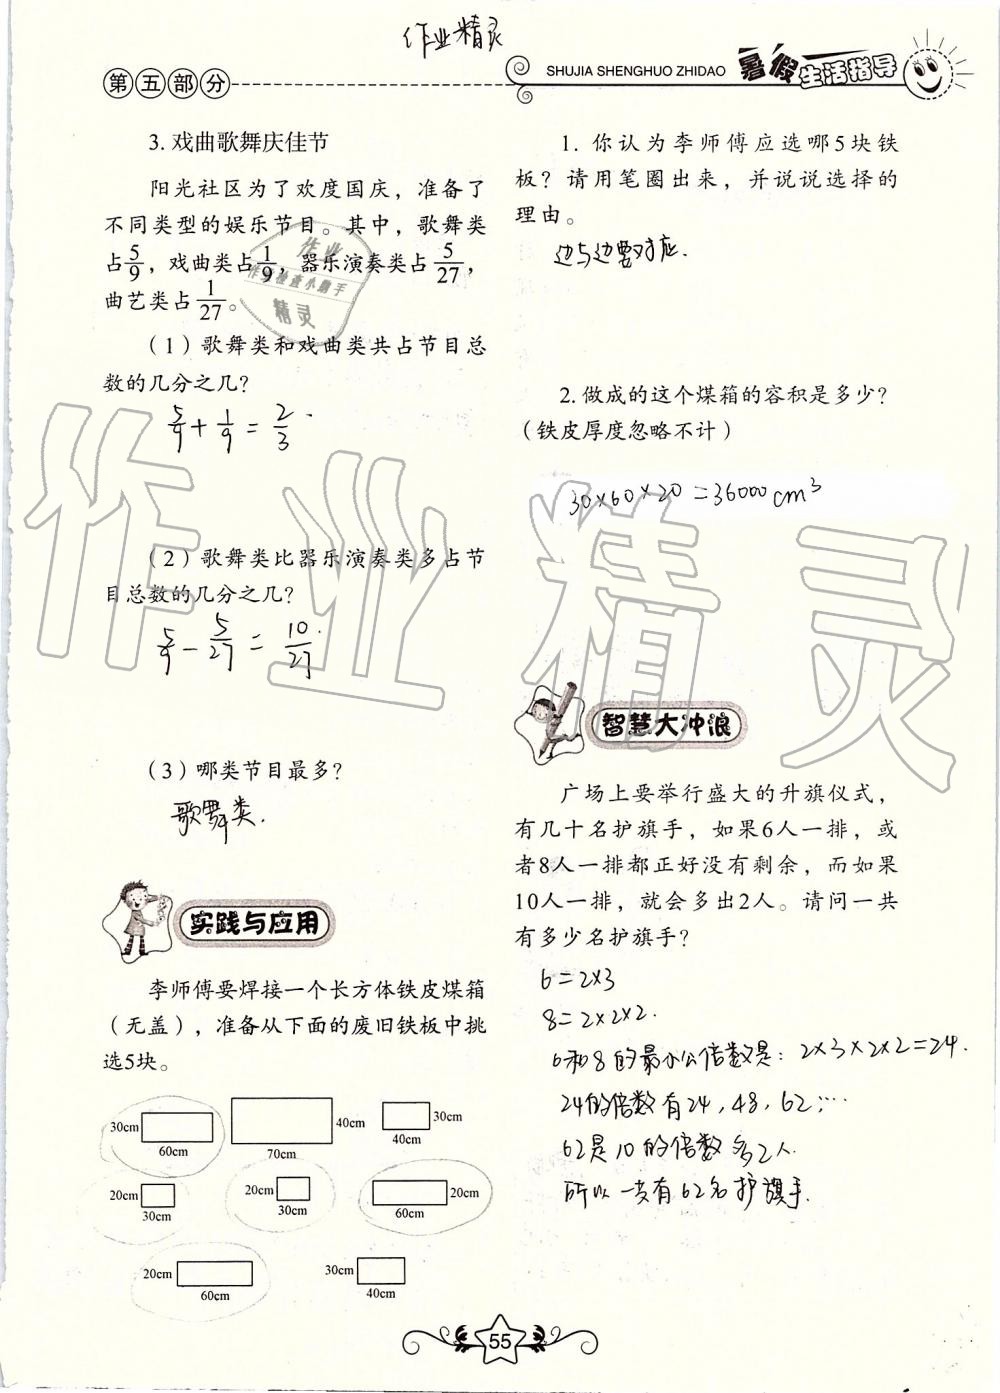 作业精灵
第五部分
SHUJIA SHENGHUO ZHIDAO 暑假生活指导
3. 戏曲歌舞庆佳节
阳光社区为了欢度国庆，准备了
不同类型的娱乐节目。其中，歌舞类
占5/9，戏曲类占1/9，器乐演奏类占5/27，
曲艺类占1/27。
（1）歌舞类和戏曲类共占节目总
数的几分之几？
5/9 + 1/9 = 2/3.
（2）歌舞类比器乐演奏类多占节
目总数的几分之几？
5/9 - 5/27 = 10/27.
（3）哪类节目最多？
歌舞类.
实践与应用
李师傅要焊接一个长方体铁皮煤箱
（无盖），准备从下面的废旧铁板中挑
选5块。
30cm 60cm
70cm 40cm
40cm 30cm
20cm 30cm
20cm 30cm
60cm 20cm
20cm 60cm
30cm 40cm
1. 你认为李师傅应选哪5块铁
板？请用笔圈出来，并说说选择的
理由。
边与边要对应.
2. 做成的这个煤箱的容积是多少？
（铁皮厚度忽略不计）
30×60×20=36000cm³
智慧大冲浪
广场上要举行盛大的升旗仪式，
有几十名护旗手，如果6人一排，或
者8人一排都正好没有剩余，而如果
10人一排，就会多出2人。请问一共
有多少名护旗手？
6=2×3
8=2×2×2.
6和8的最小公倍数是：2×3×2×2=24.
24的倍数有24，48，62；…
62是10的倍数多2人.
所以一共有62名护旗手.
55
作业
作业检查小助手
精灵
作业精灵